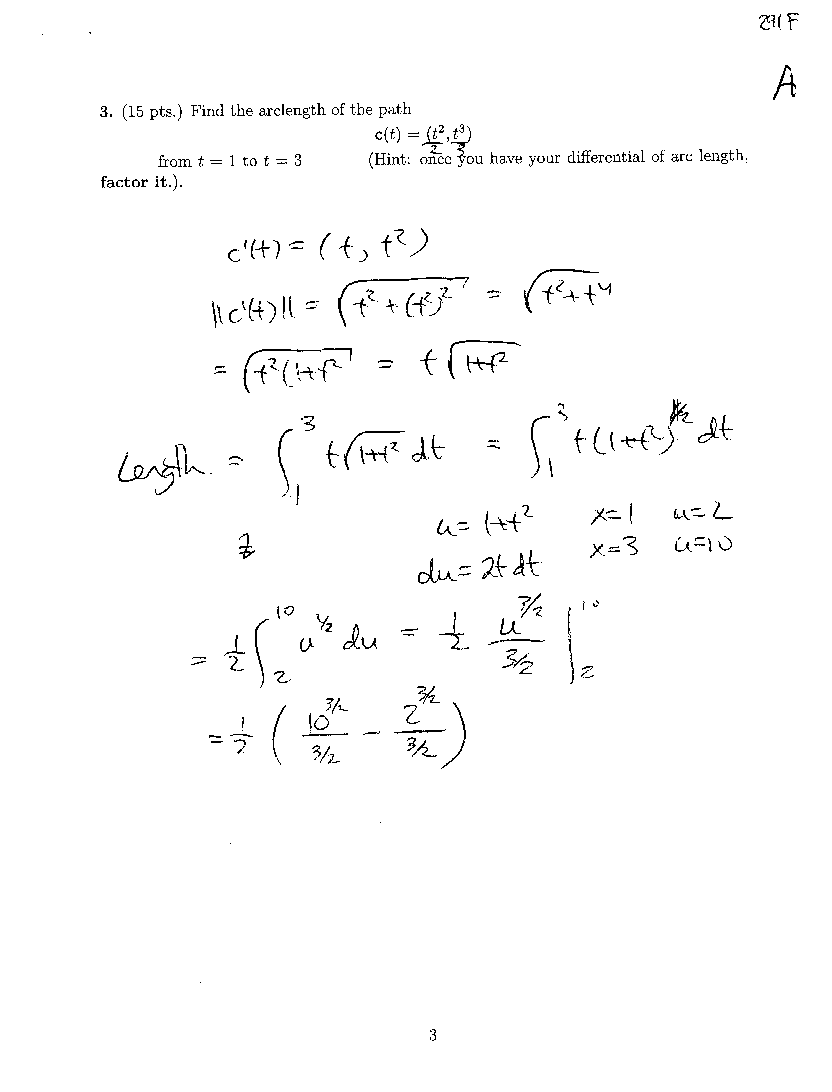 291F
A
3. (15 pts.) Find the arclength of the path
c(t) = (t²/2, t³/3)
from t = 1 to t = 3 (Hint: once you have your differential of arc length,
factor it.).
c'(t) = (t, t²)
||c'(t)|| = √(t² + (t²)²) = √(t² + t⁴)
= √(t²(1+t²)) = t√(1+t²)
Length = ∫₁³ t√(1+t²) dt = ∫₁³ t(1+t²)^(1/2) dt
u = 1+t² x=1 u=2
du = 2t dt x=3 u=10
= 1/2 ∫₂¹⁰ u^(1/2) du = 1/2 u^(3/2)/(3/2) |₂¹⁰
= 1/2 (10^(3/2)/(3/2) − 2^(3/2)/(3/2))
3